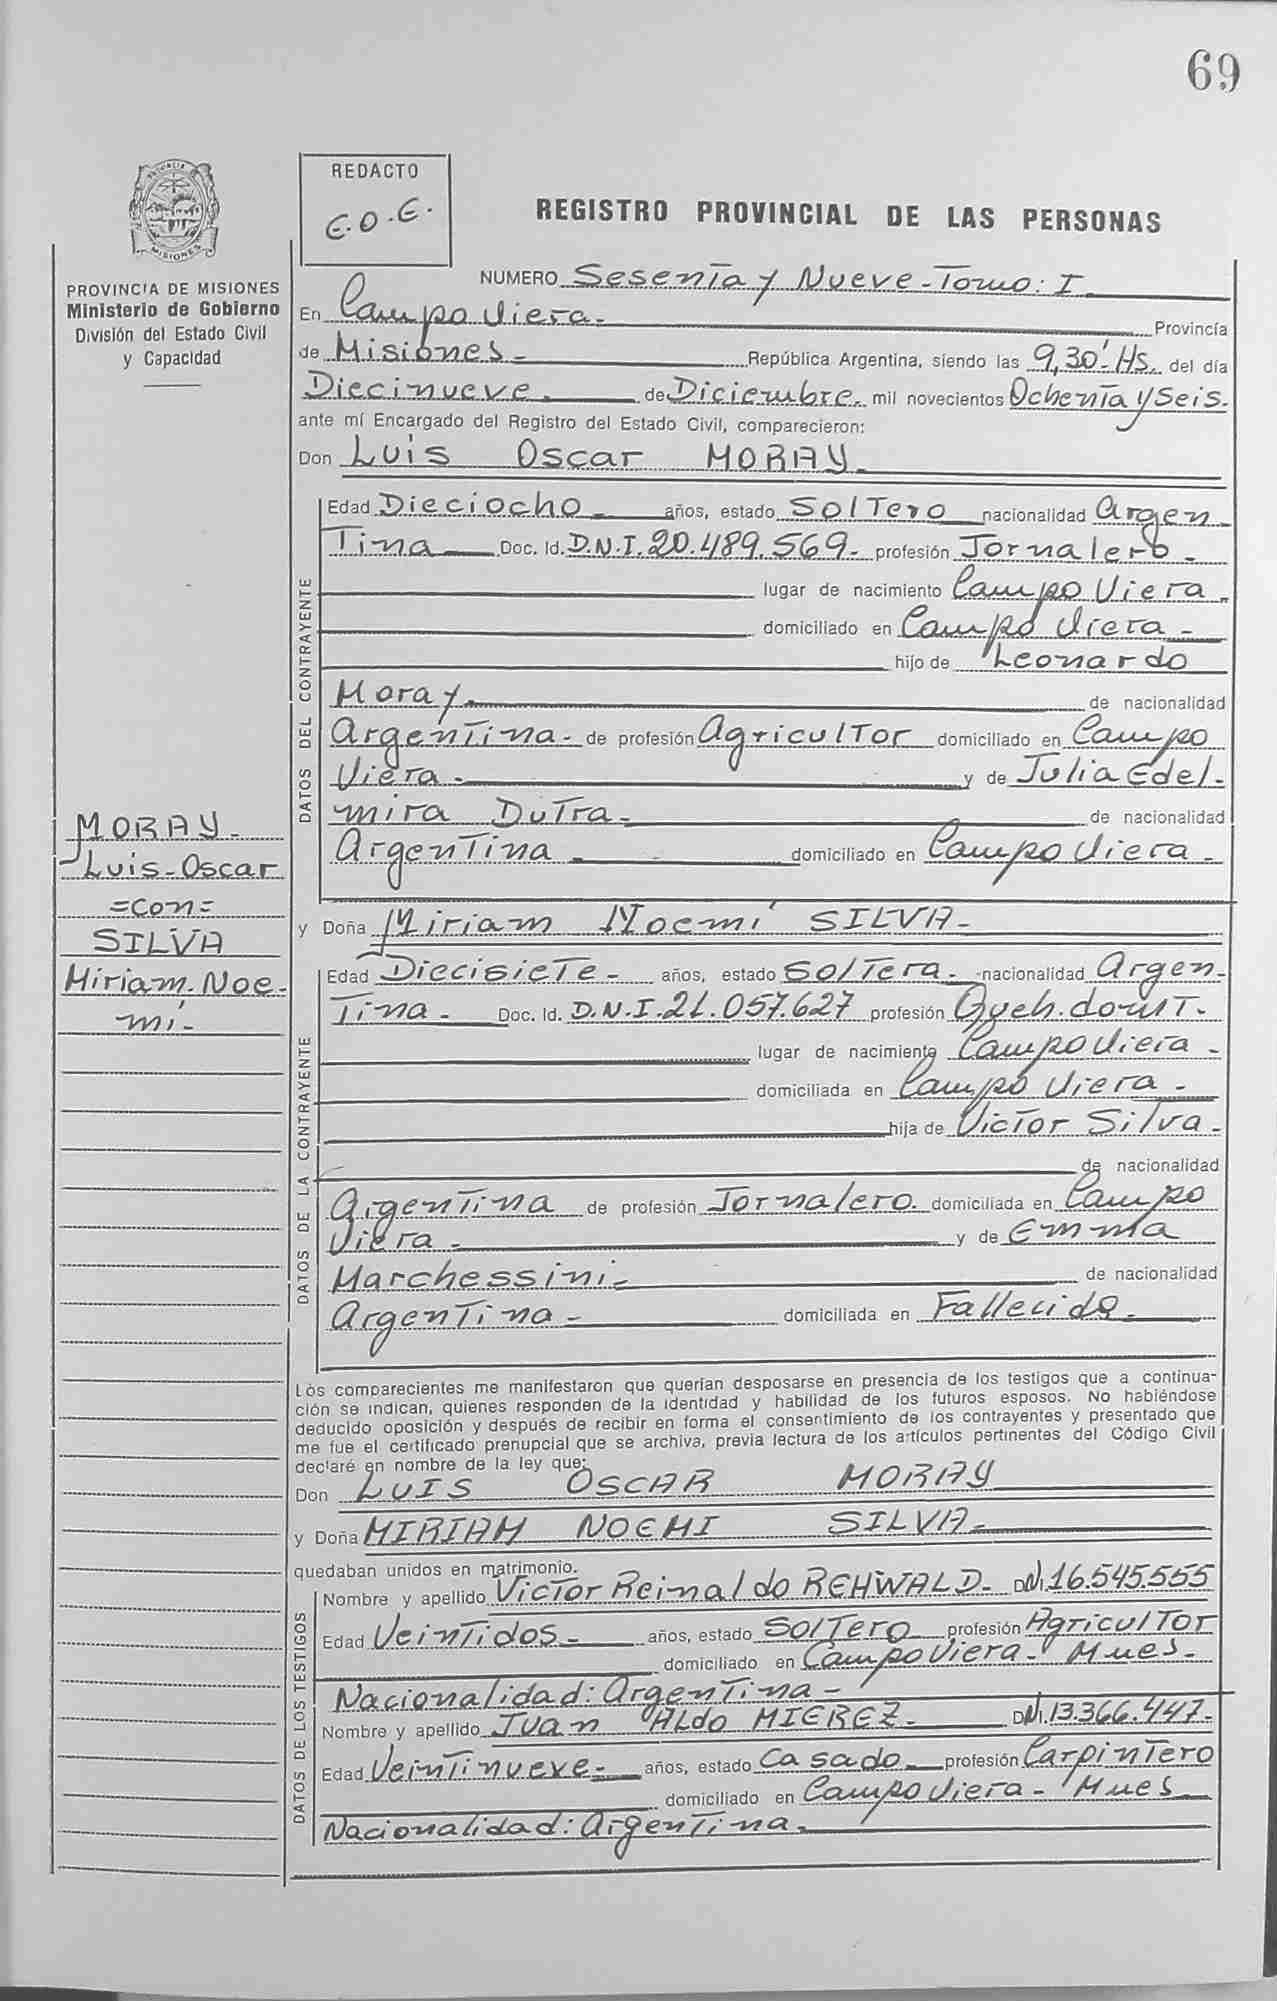 69
PROVINCIA
MISIONES
PROVINCIA DE MISIONES
Ministerio de Gobierno
División del Estado Civil
y Capacidad
REDACTO
E.O.E.
REGISTRO PROVINCIAL DE LAS PERSONAS
NUMERO Sesenta y Nueve - Tomo: I
En Campo Viera - Provincia
de Misiones - República Argentina, siendo las 9,30' Hs. del día
Diecinueve de Diciembre mil novecientos Ochenta y Seis.
ante mí Encargado del Registro del Estado Civil, comparecieron:
Don Luis Oscar MORAY -
DATOS DEL CONTRAYENTE
Edad Dieciocho - años, estado Soltero nacionalidad Argen
tina Doc. Id. D.N.I. 20.489.569 - profesión Jornalero -
lugar de nacimiento Campo Viera -
domiciliado en Campo Viera -
hijo de Leonardo
Moray de nacionalidad
Argentina - de profesión Agricultor domiciliado en Campo
Viera - y de Julia Edel -
mira Dutra - de nacionalidad
Argentina - domiciliado en Campo Viera -
MORAY -
Luis - Oscar
= con =
SILVA
Miriam - Noe -
mi -
y Doña Miriam Noemí SILVA -
DATOS DE LA CONTRAYENTE
Edad Diecisiete - años, estado Soltera - nacionalidad Argen -
tina - Doc. Id. D.N.I. 21.057.627 profesión Queh. domt.
lugar de nacimiento Campo Viera -
domiciliada en Campo Viera -
hija de Victor Silva -
de nacionalidad
Argentina de profesión Jornalero. domiciliada en Campo
Viera - y de Emma
Marchessini - de nacionalidad
Argentina - domiciliada en Fallecida -
Los comparecientes me manifestaron que querían desposarse en presencia de los testigos que a continua-
ción se indican, quienes responden de la identidad y habilidad de los futuros esposos. No habiéndose
deducido oposición y después de recibir en forma el consentimiento de los contrayentes y presentado que
me fue el certificado prenupcial que se archiva, previa lectura de los artículos pertinentes del Código Civil
declaré en nombre de la ley que:
Don LUIS OSCAR MORAY
y Doña MIRIAM NOEMI SILVA -
quedaban unidos en matrimonio.
DATOS DE LOS TESTIGOS
Nombre y apellido Victor Reinaldo REHWALD - DNI. 16.545.555
Edad Veintidos - años, estado Soltero profesión Agricultor
domiciliado en Campo Viera - Mnes -
Nacionalidad: Argentina -
Nombre y apellido Juan Aldo MIEREZ - DNI. 13.366.447 -
Edad Veintinueve - años, estado Casado - profesión Carpintero
domiciliado en Campo Viera - Mnes
Nacionalidad: Argentina -